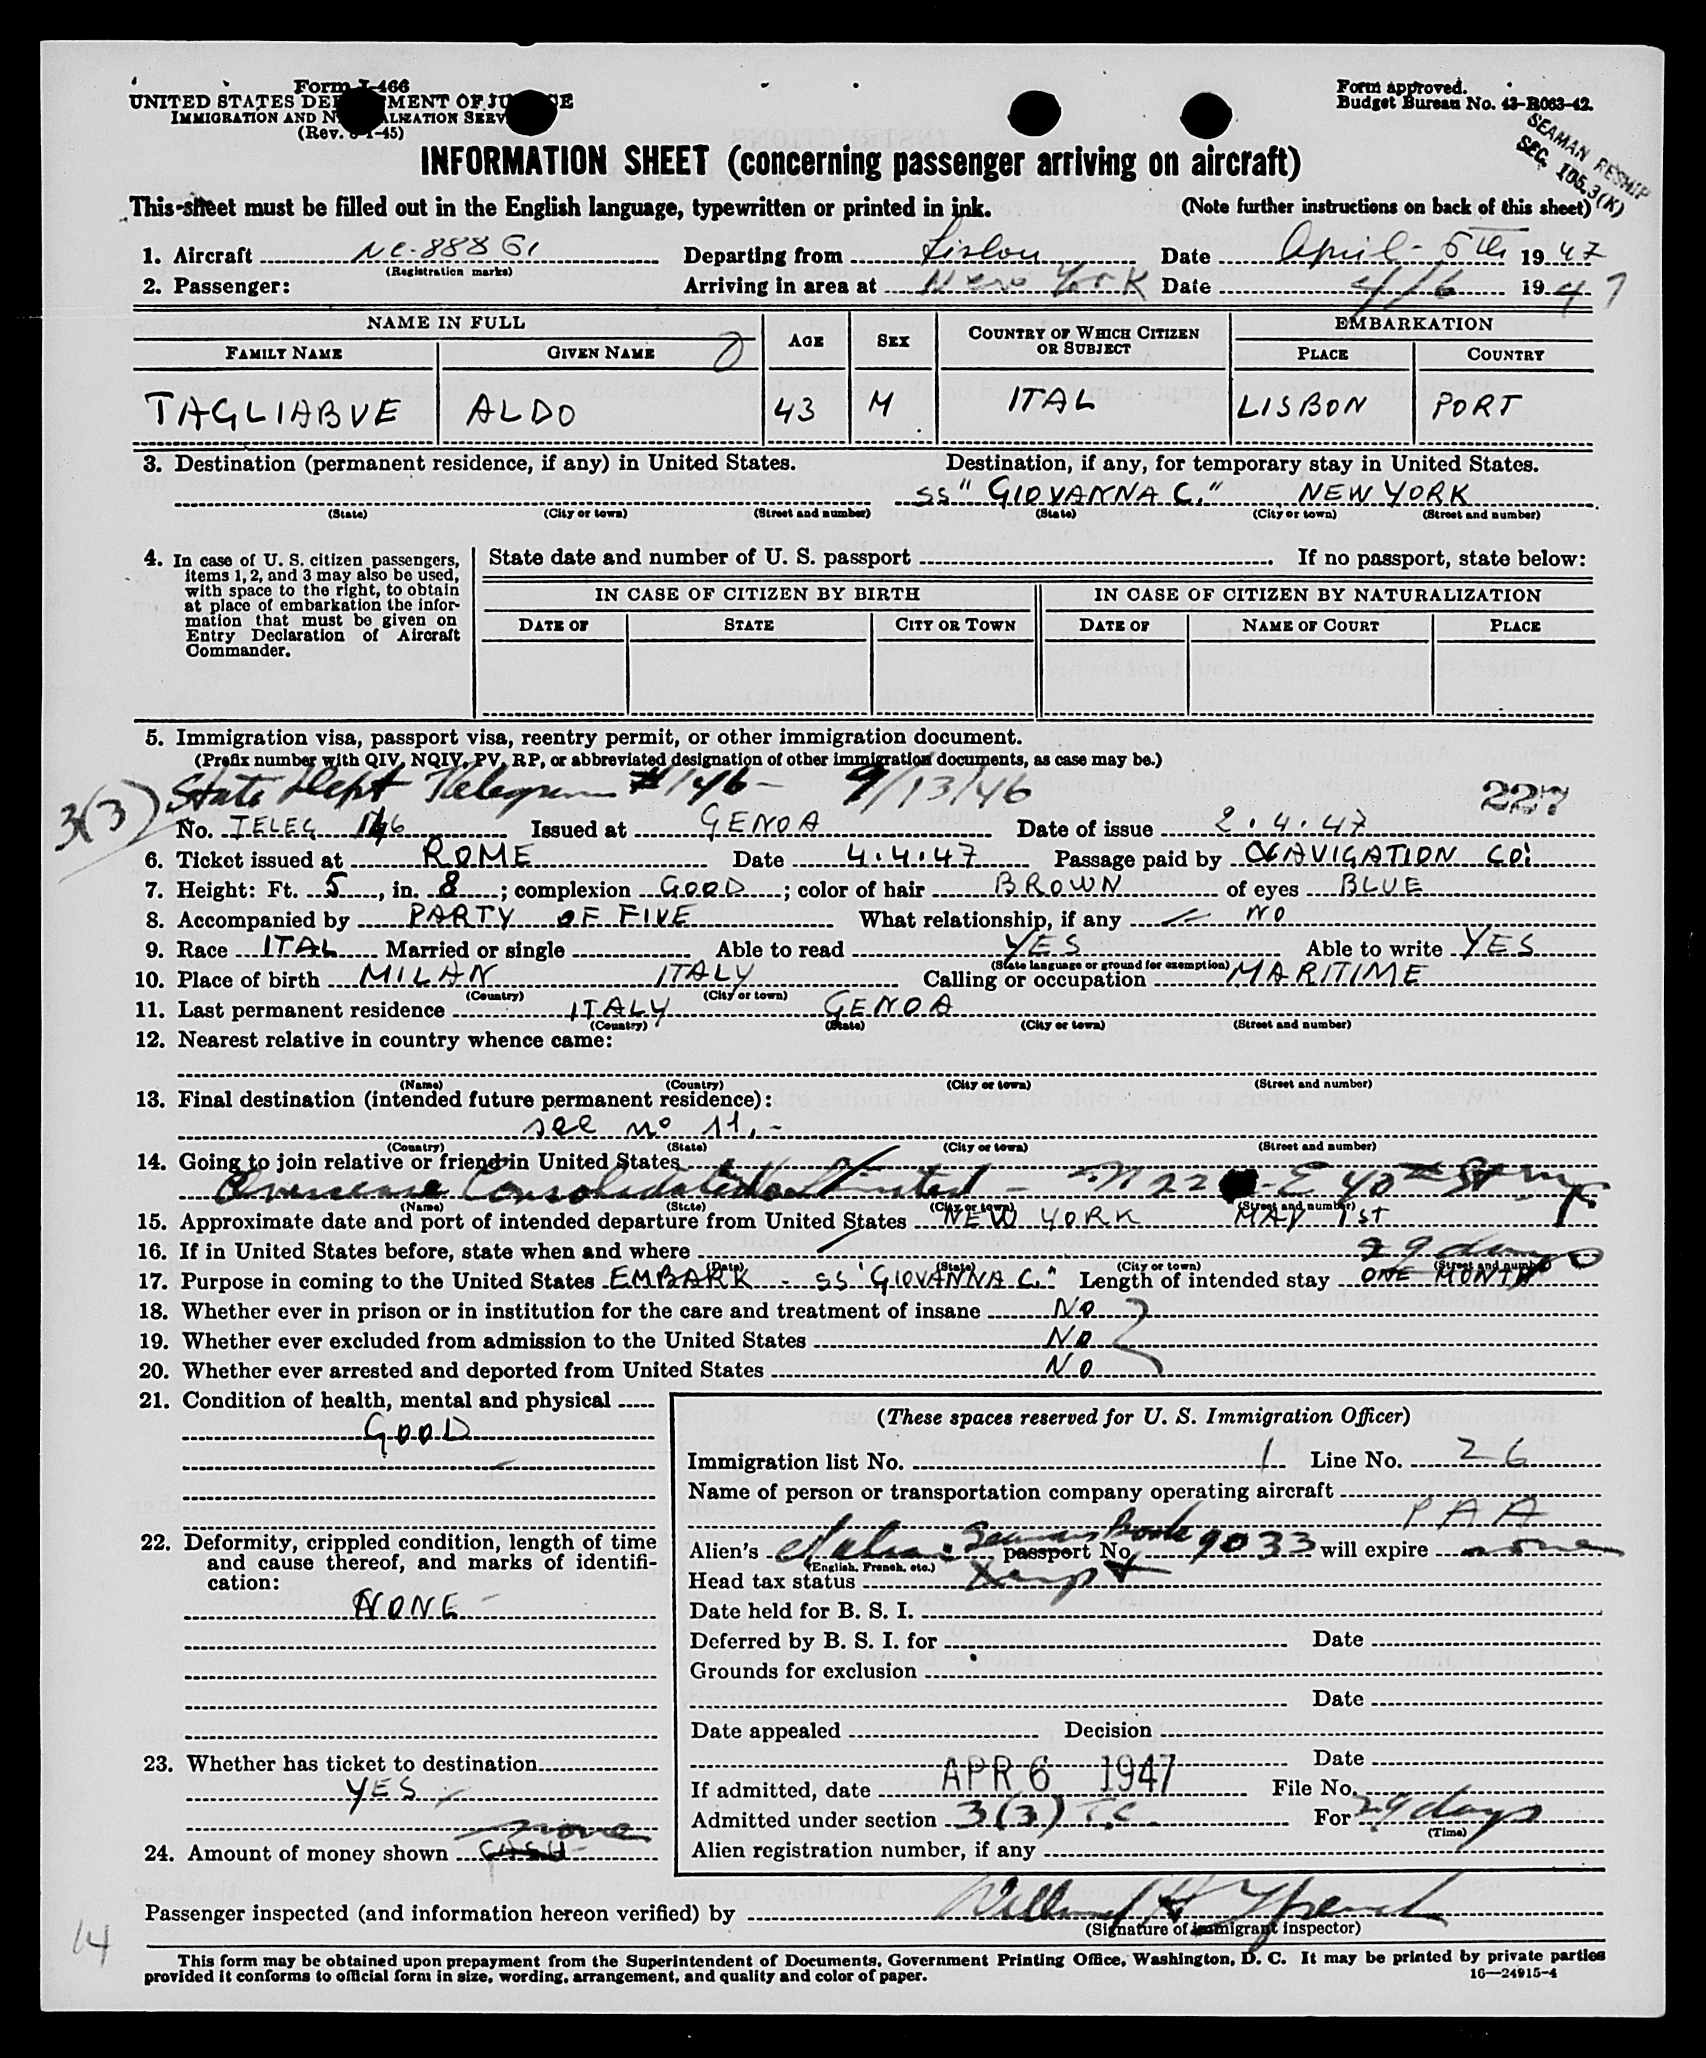 Form I-466
UNITED STATES DEPARTMENT OF JUSTICE
IMMIGRATION AND NATURALIZATION SERVICE
(Rev. 8-1-45)
Form approved.
Budget Bureau No. 43-R063-42.
SEAMAN RESHIP
SEC. 105.3(K)
INFORMATION SHEET (concerning passenger arriving on aircraft)
This sheet must be filled out in the English language, typewritten or printed in ink. (Note further instructions on back of this sheet)
1. Aircraft NC-88861 Departing from Lisbon Date April-5th 1947
(Registration marks)
2. Passenger: Arriving in area at New York Date 4/6 1947
NAME IN FULL AGE SEX COUNTRY OF WHICH CITIZEN OR SUBJECT EMBARKATION
FAMILY NAME GIVEN NAME PLACE COUNTRY
TAGLIABVE ALDO 43 M ITAL LISBON PORT
3. Destination (permanent residence, if any) in United States. Destination, if any, for temporary stay in United States.
SS "GIOVANNA C." NEW YORK
(State) (City or town) (Street and number) (State) (City or town) (Street and number)
4. In case of U. S. citizen passengers, items 1, 2, and 3 may also be used, with space to the right, to obtain at place of embarkation the information that must be given on Entry Declaration of Aircraft Commander.
State date and number of U. S. passport If no passport, state below:
IN CASE OF CITIZEN BY BIRTH IN CASE OF CITIZEN BY NATURALIZATION
DATE OF STATE CITY OR TOWN DATE OF NAME OF COURT PLACE
5. Immigration visa, passport visa, reentry permit, or other immigration document.
(Prefix number with QIV, NQIV, PV, RP, or abbreviated designation of other immigration documents, as case may be.)
3(3) State Dept Telegram #146 - 9/13/46 227
No. TELEG 146 Issued at GENOA Date of issue 2.4.47
6. Ticket issued at ROME Date 4.4.47 Passage paid by NAVIGATION CO:
7. Height: Ft. 5, in. 8; complexion GOOD; color of hair BROWN of eyes BLUE
8. Accompanied by PARTY OF FIVE What relationship, if any NO
9. Race ITAL Married or single Able to read YES Able to write YES
(State language or ground for exemption)
10. Place of birth MILAN ITALY Calling or occupation MARITIME
(Country) (City or town)
11. Last permanent residence ITALY GENOA
(Country) (State) (City or town) (Street and number)
12. Nearest relative in country whence came:
(Name) (Country) (City or town) (Street and number)
13. Final destination (intended future permanent residence):
see no 11.-
(Country) (State) (City or town) (Street and number)
14. Going to join relative or friend in United States
Overseas Consolidated Co Limited - 22 - E 40th St NY
(Name) (State) (City or town) (Street and number)
15. Approximate date and port of intended departure from United States NEW YORK MAY 1ST
16. If in United States before, state when and where
(Date) (State) (City or town) (Street and number)
29 days
17. Purpose in coming to the United States EMBARK - SS "GIOVANNA C." Length of intended stay ONE MONTH
18. Whether ever in prison or in institution for the care and treatment of insane NO
19. Whether ever excluded from admission to the United States NO
20. Whether ever arrested and deported from United States NO
21. Condition of health, mental and physical
GOOD
22. Deformity, crippled condition, length of time and cause thereof, and marks of identification:
NONE
23. Whether has ticket to destination
YES
none
24. Amount of money shown CASH
(These spaces reserved for U. S. Immigration Officer)
Immigration list No. 1 Line No. 26
Name of person or transportation company operating aircraft
PAA
Alien's Italian Seamans Book passport No. 9033 will expire none
(English, French, etc.)
Head tax status Exempt
Date held for B. S. I.
Deferred by B. S. I. for Date
Grounds for exclusion
Date
Date appealed Decision
Date
If admitted, date APR 6 1947 File No.
Admitted under section 3(3) For 29 days
(Time)
Alien registration number, if any
Passenger inspected (and information hereon verified) by
(Signature of immigrant inspector)
14
This form may be obtained upon prepayment from the Superintendent of Documents, Government Printing Office, Washington, D. C. It may be printed by private parties
provided it conforms to official form in size, wording, arrangement, and quality and color of paper.
16—24915-4